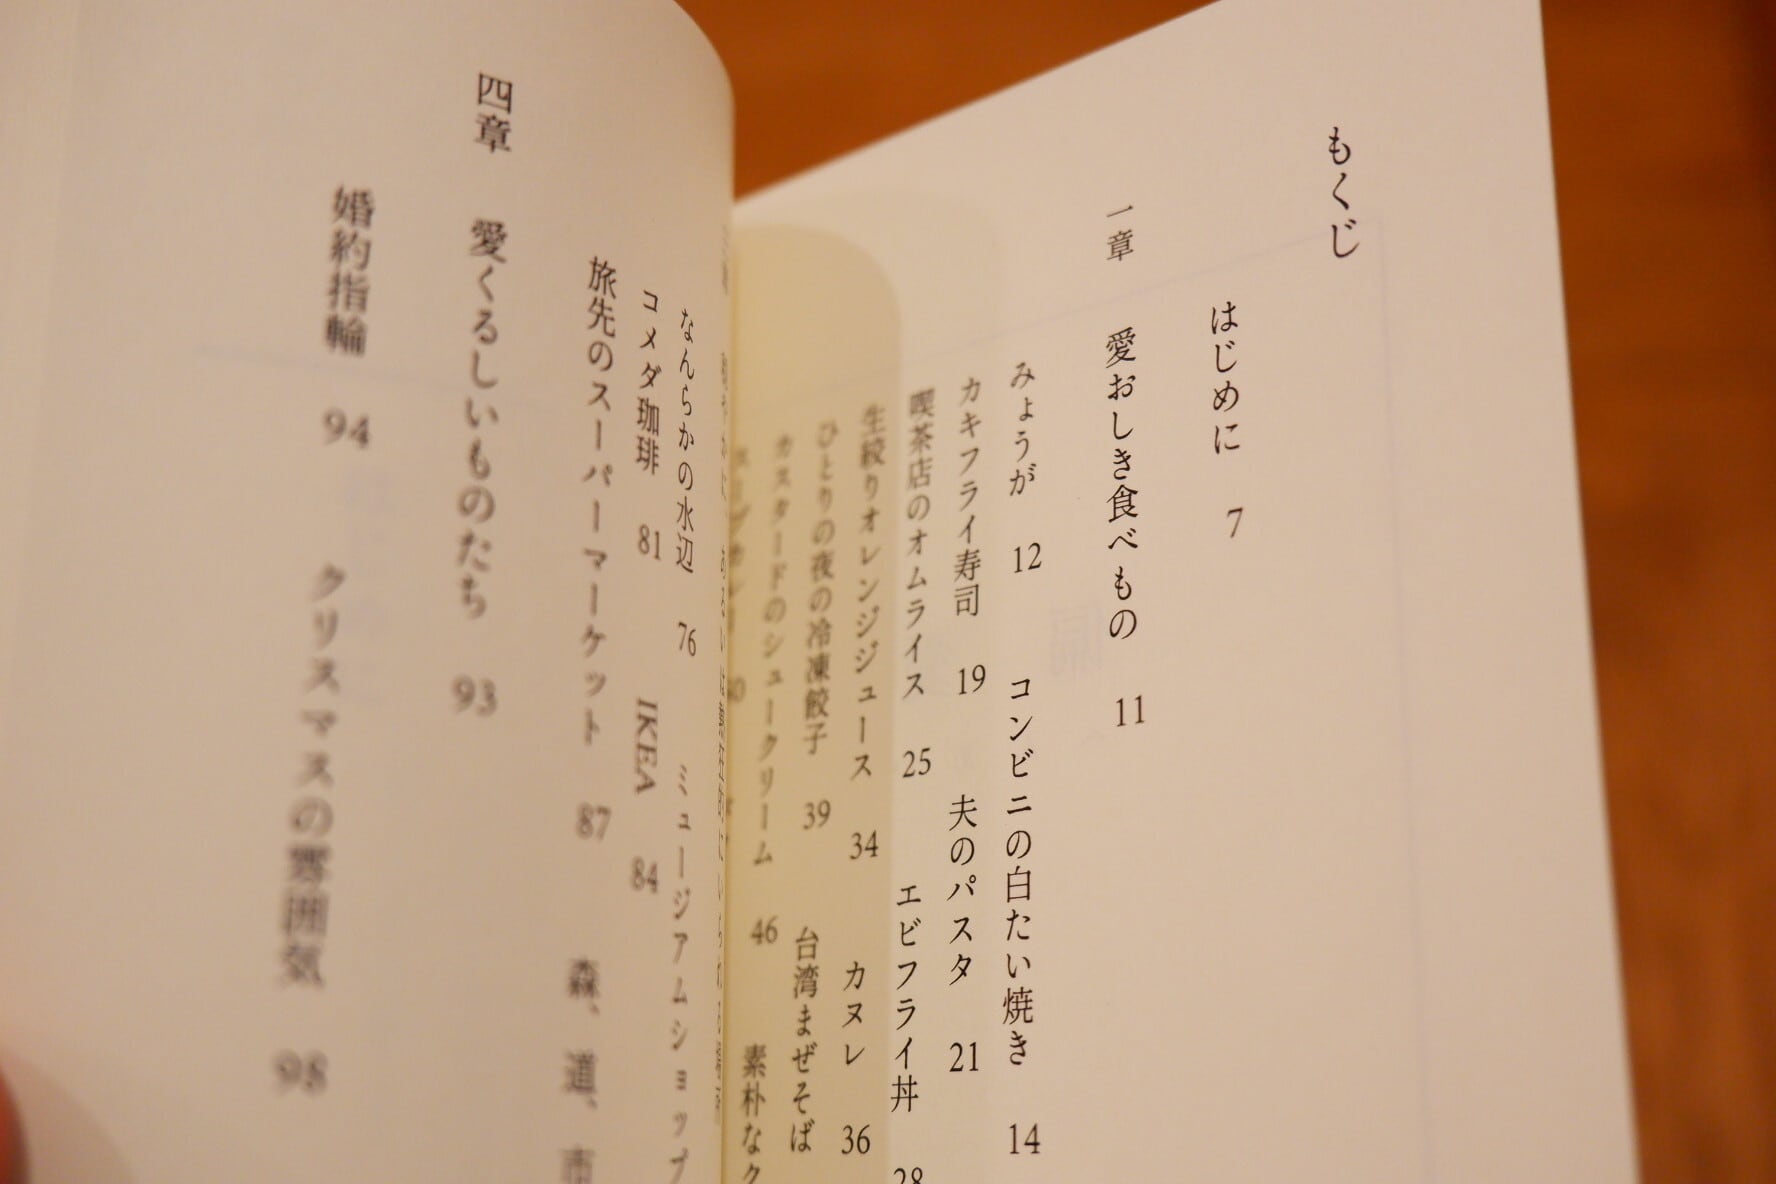 もくじ
はじめに 7
一章 愛おしき食べもの 11
みょうが 12 コンビニの白たい焼き 14
カキフライ寿司 19 夫のパスタ 21
喫茶店のオムライス 25 エビフライ丼 28
生絞りオレンジジュース 34 カヌレ 36
ひとりの夜の冷凍餃子 39 台湾まぜそば
カスタードのシュークリーム 46 素朴なク
なんらかの水辺 76 ミュージアムショップ
コメダ珈琲 81 IKEA 84
旅先のスーパーマーケット 87 森、道、市
四章 愛くるしいものたち 93
婚約指輪 94 クリスマスの雰囲気 98